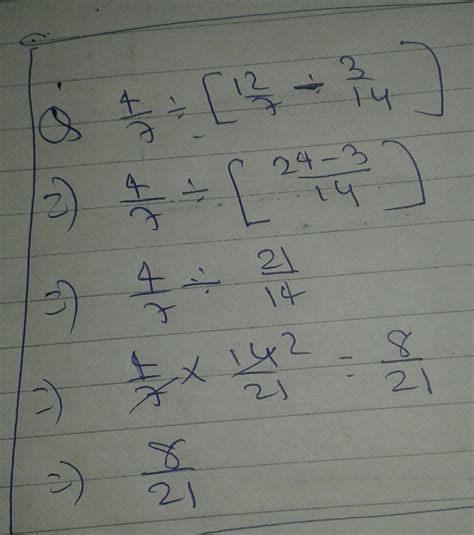 Q 4/7 ÷ [12/7 - 3/14]
=) 4/7 ÷ [24-3/14]
=) 4/7 ÷ 21/14
=) 4/7 × 14 2/21 = 8/21
=) 8/21